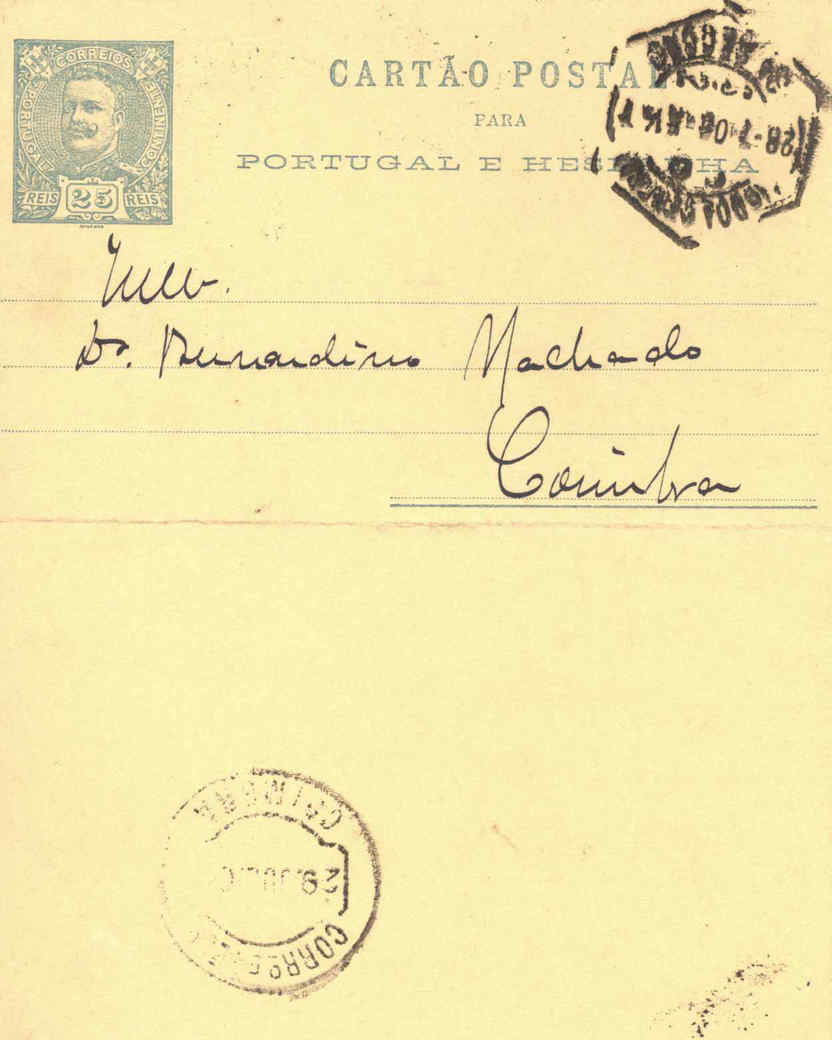 CORREIOS
PORTUGAL
CONTINENTE
REIS 25 REIS
CARTÃO POSTAL
PARA
PORTUGAL E HESPANHA
Dr. Bernardino Machado
Coimbra
COIMBRA
29 JUL